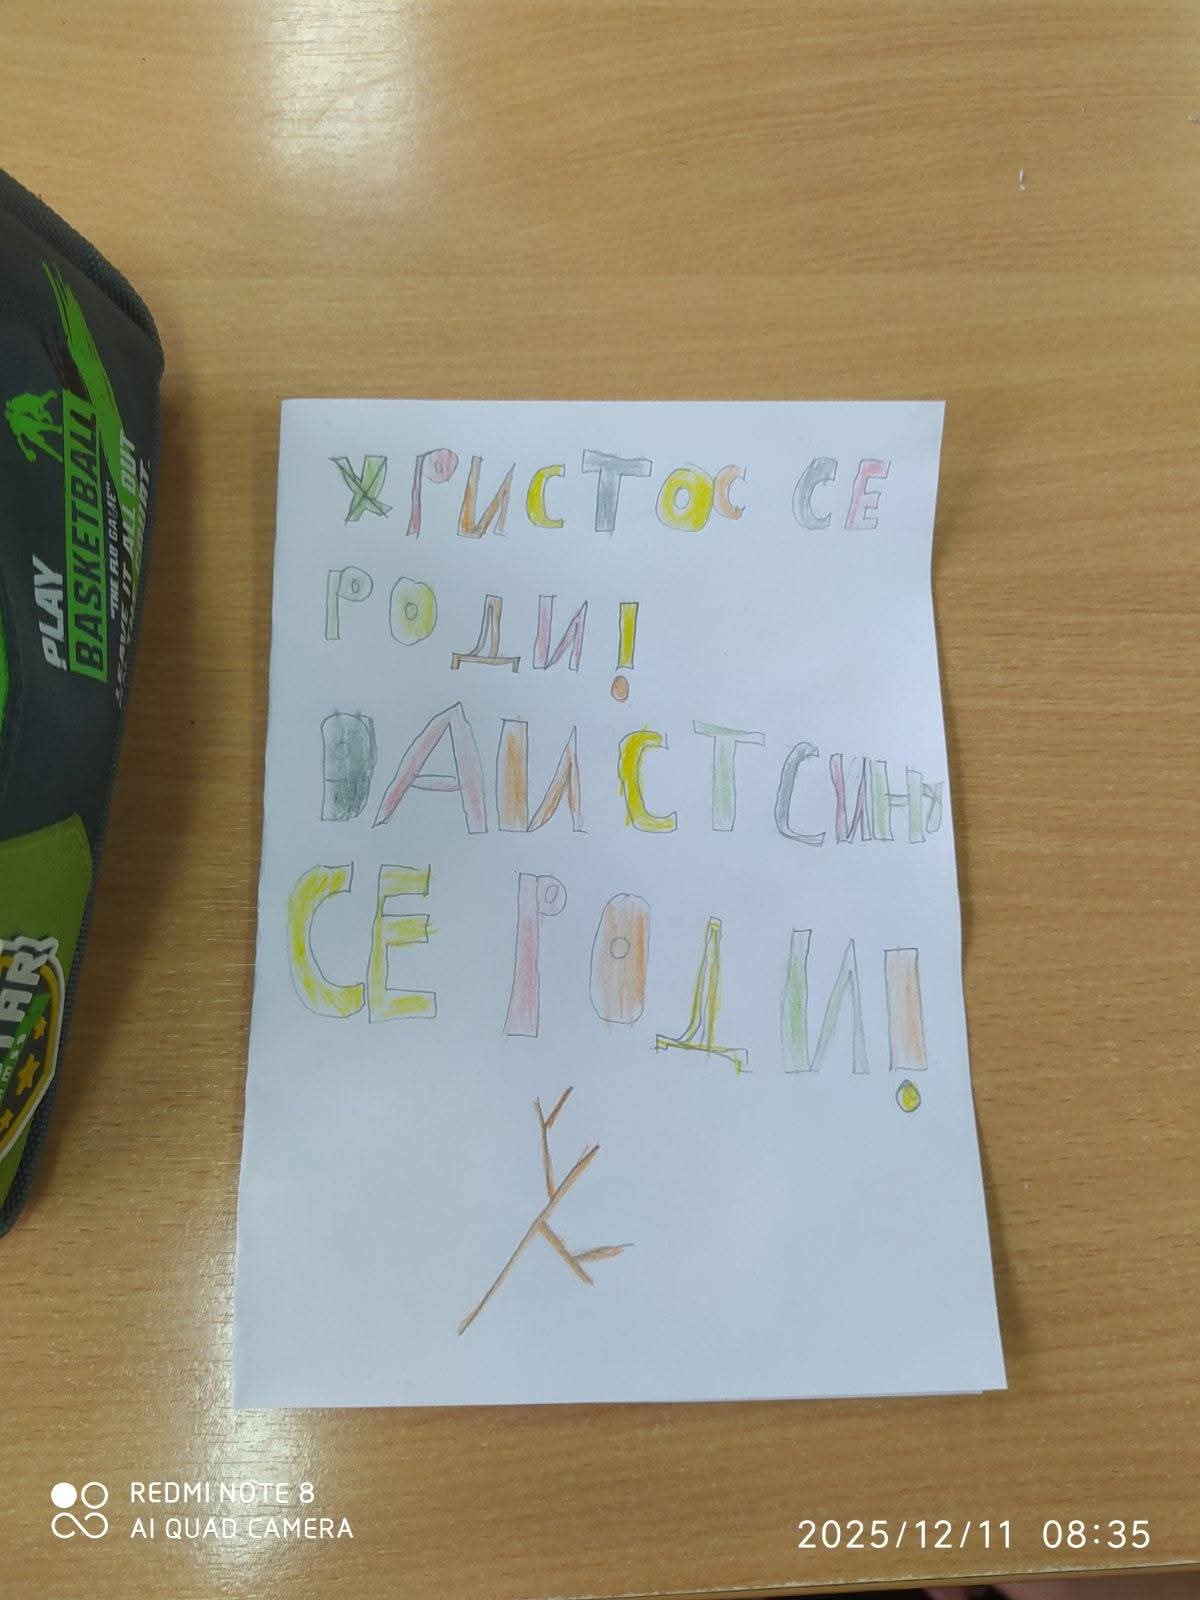 ХРИСТОС СЕ
РОДИ!
ВАИСТСИНУ
СЕ РОДИ!
PLAY
BASKETBALL
"THE FLB GAME"
LEAVE IT ALL OUT
TAR
REDMI NOTE 8
AI QUAD CAMERA
2025/12/11 08:35